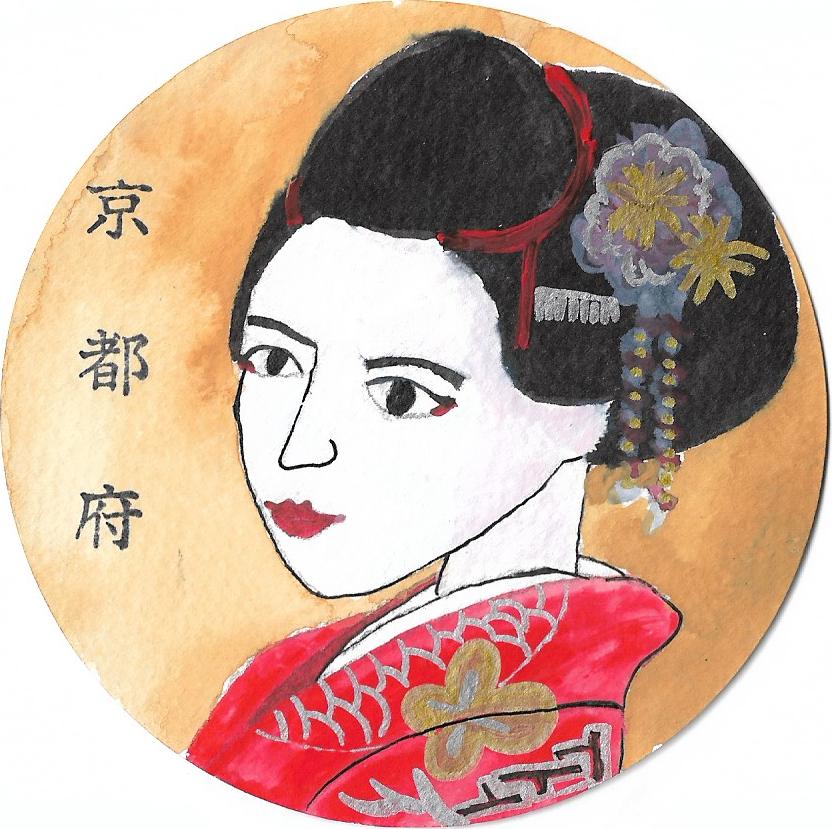 京都府